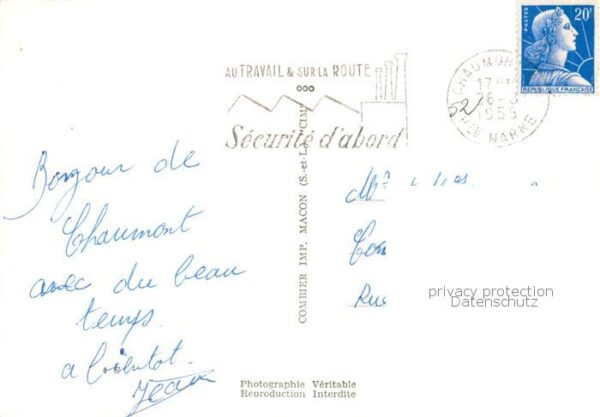 POSTES
20F
REPUBLIQUE FRANÇAISE
AU TRAVAIL & SUR LA ROUTE
Sécurité d'abord
CHAUMONT
17
1959
Hte MARNE
52
Bonjour de
Chaumont
avec du beau
temps.
a bientot.
Jean
COMBIER IMP. MACON (S.-et-L.) CIM
Mr
Rue
privacy protection
Datenschutz
Photographie Véritable
Reproduction Interdite